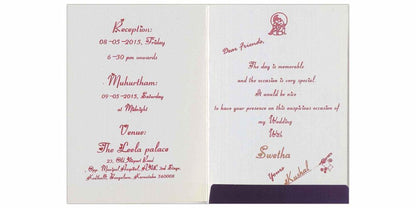 Reception:
08-05-2015, Friday
6-30 pm onwards
Muhurtham:
09-05-2015, Saturday
at Midnight
Venue:
The Leela palace
23, Old Airport Road
Opp. Manipal Hospital, H.A.L 2nd Stage,
Kodihalli, Bangalore, Karnataka 560008
Dear Friends,
The day is memorable
and the occasion is very special.
It would be nice
to have your presence on this auspicious occasion of
my Wedding
With
Swetha
Yours
Kushal